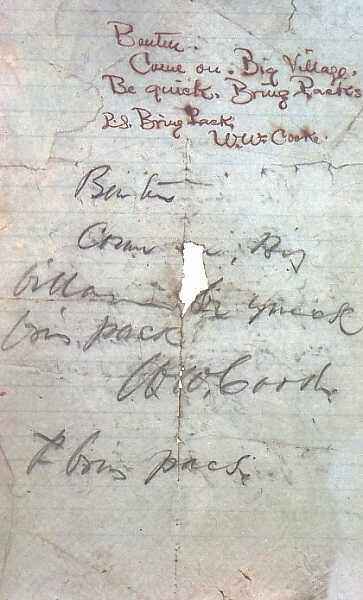 Benteen.
Come on. Big Village.
Be quick. Bring Packs
P.S. Bring Pack
W.W. Cooke.
Benteen
Come on, Big
Village be quick
bring packs
W.W. Cooke
P bring pacs.